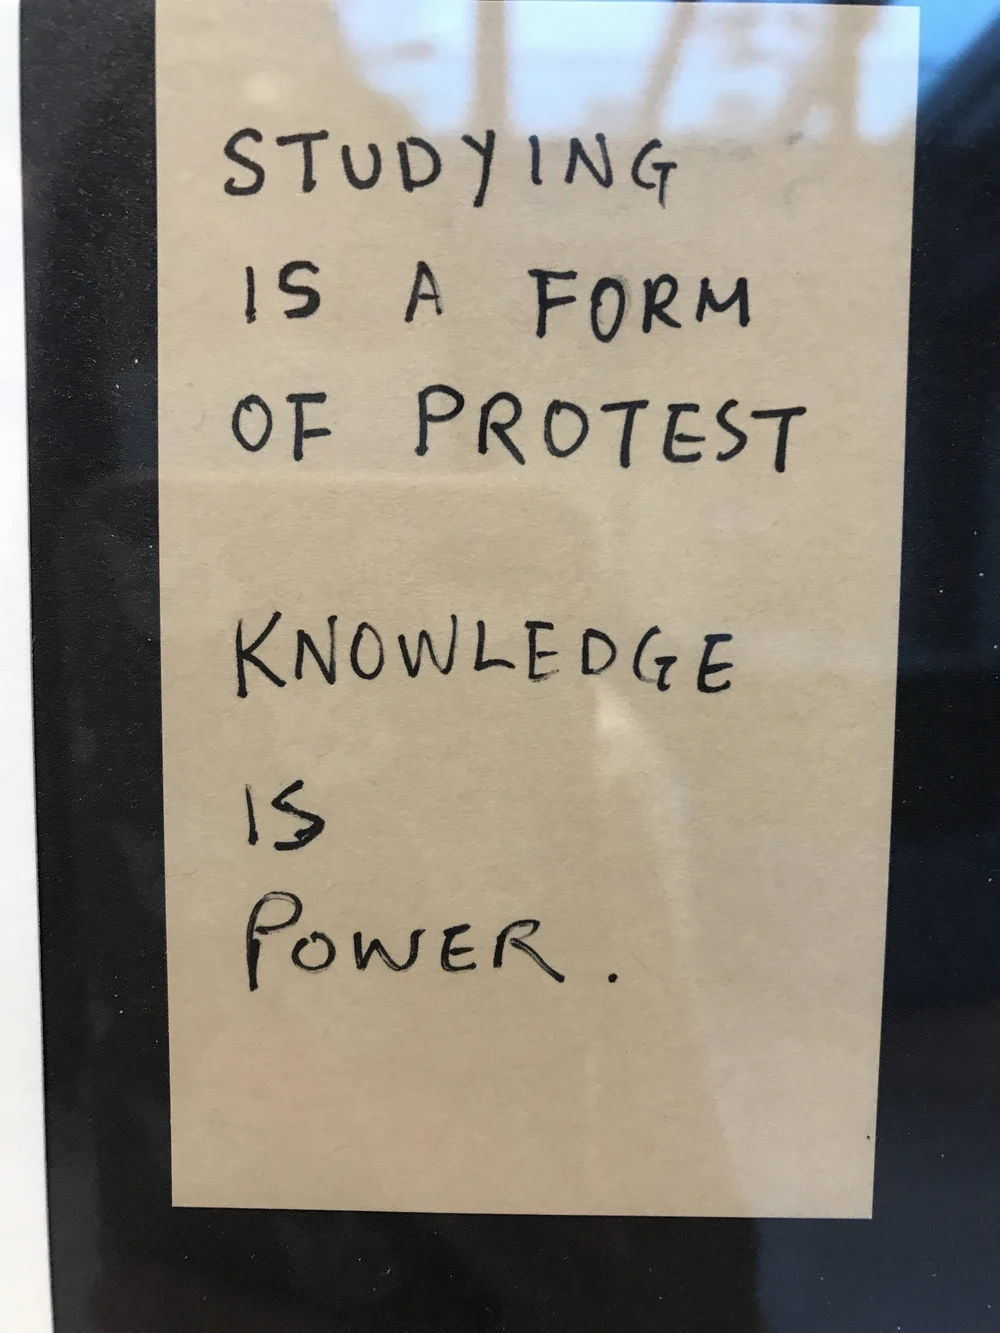 STUDYING
IS A FORM
OF PROTEST
KNOWLEDGE
IS
POWER.